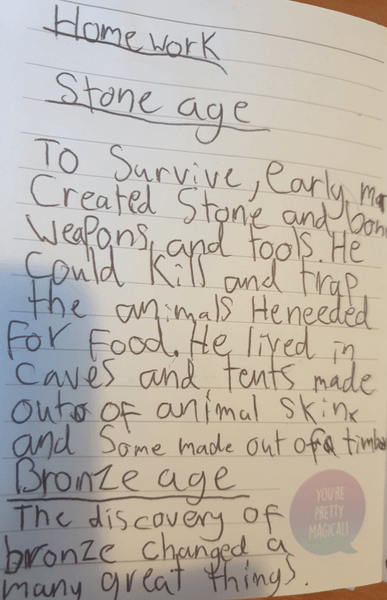 Homework
Stone age
To Survive, early, ma
Created Stone and bon
weapons, and tools. He
Could Kill and trap
the animals Heneeded
For Food. He lived in
Caves and tents made
outs of animal skins
and Some made out of a timber
Bronze age
The discovery of
bronze changed a
many great things.
YOU'RE
PRETTY
MAGICAL!